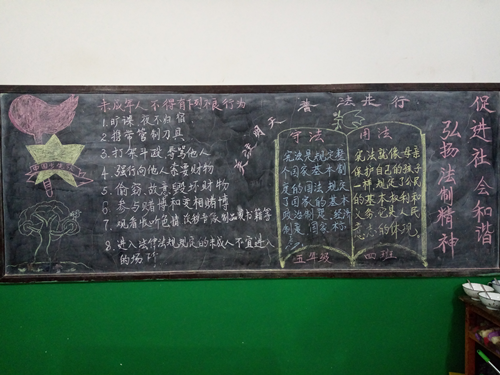 未成年人不得有下列不良行为
1. 旷课、夜不归宿
2. 携带管制刀具
3. 打架斗殴、辱骂他人
4. 强行向他人索要财物
5. 偷窃、故意毁坏财物
6. 参与赌博和变相赌博
7. 观看收听色情
8. 进入法律法规规定的未成人不宜进入
的场所
普法先行
守法
宪法是规定整
个国家基本制
度的国法 规定
了国家的基本
政治制度
制度 国家标
用法
宪法就像母亲
保护自己的孩子
一样规定了公民
的基本权利和
义务,它是人民
意志的体现
五年级 四班
促进社会和谐
弘扬法制精神